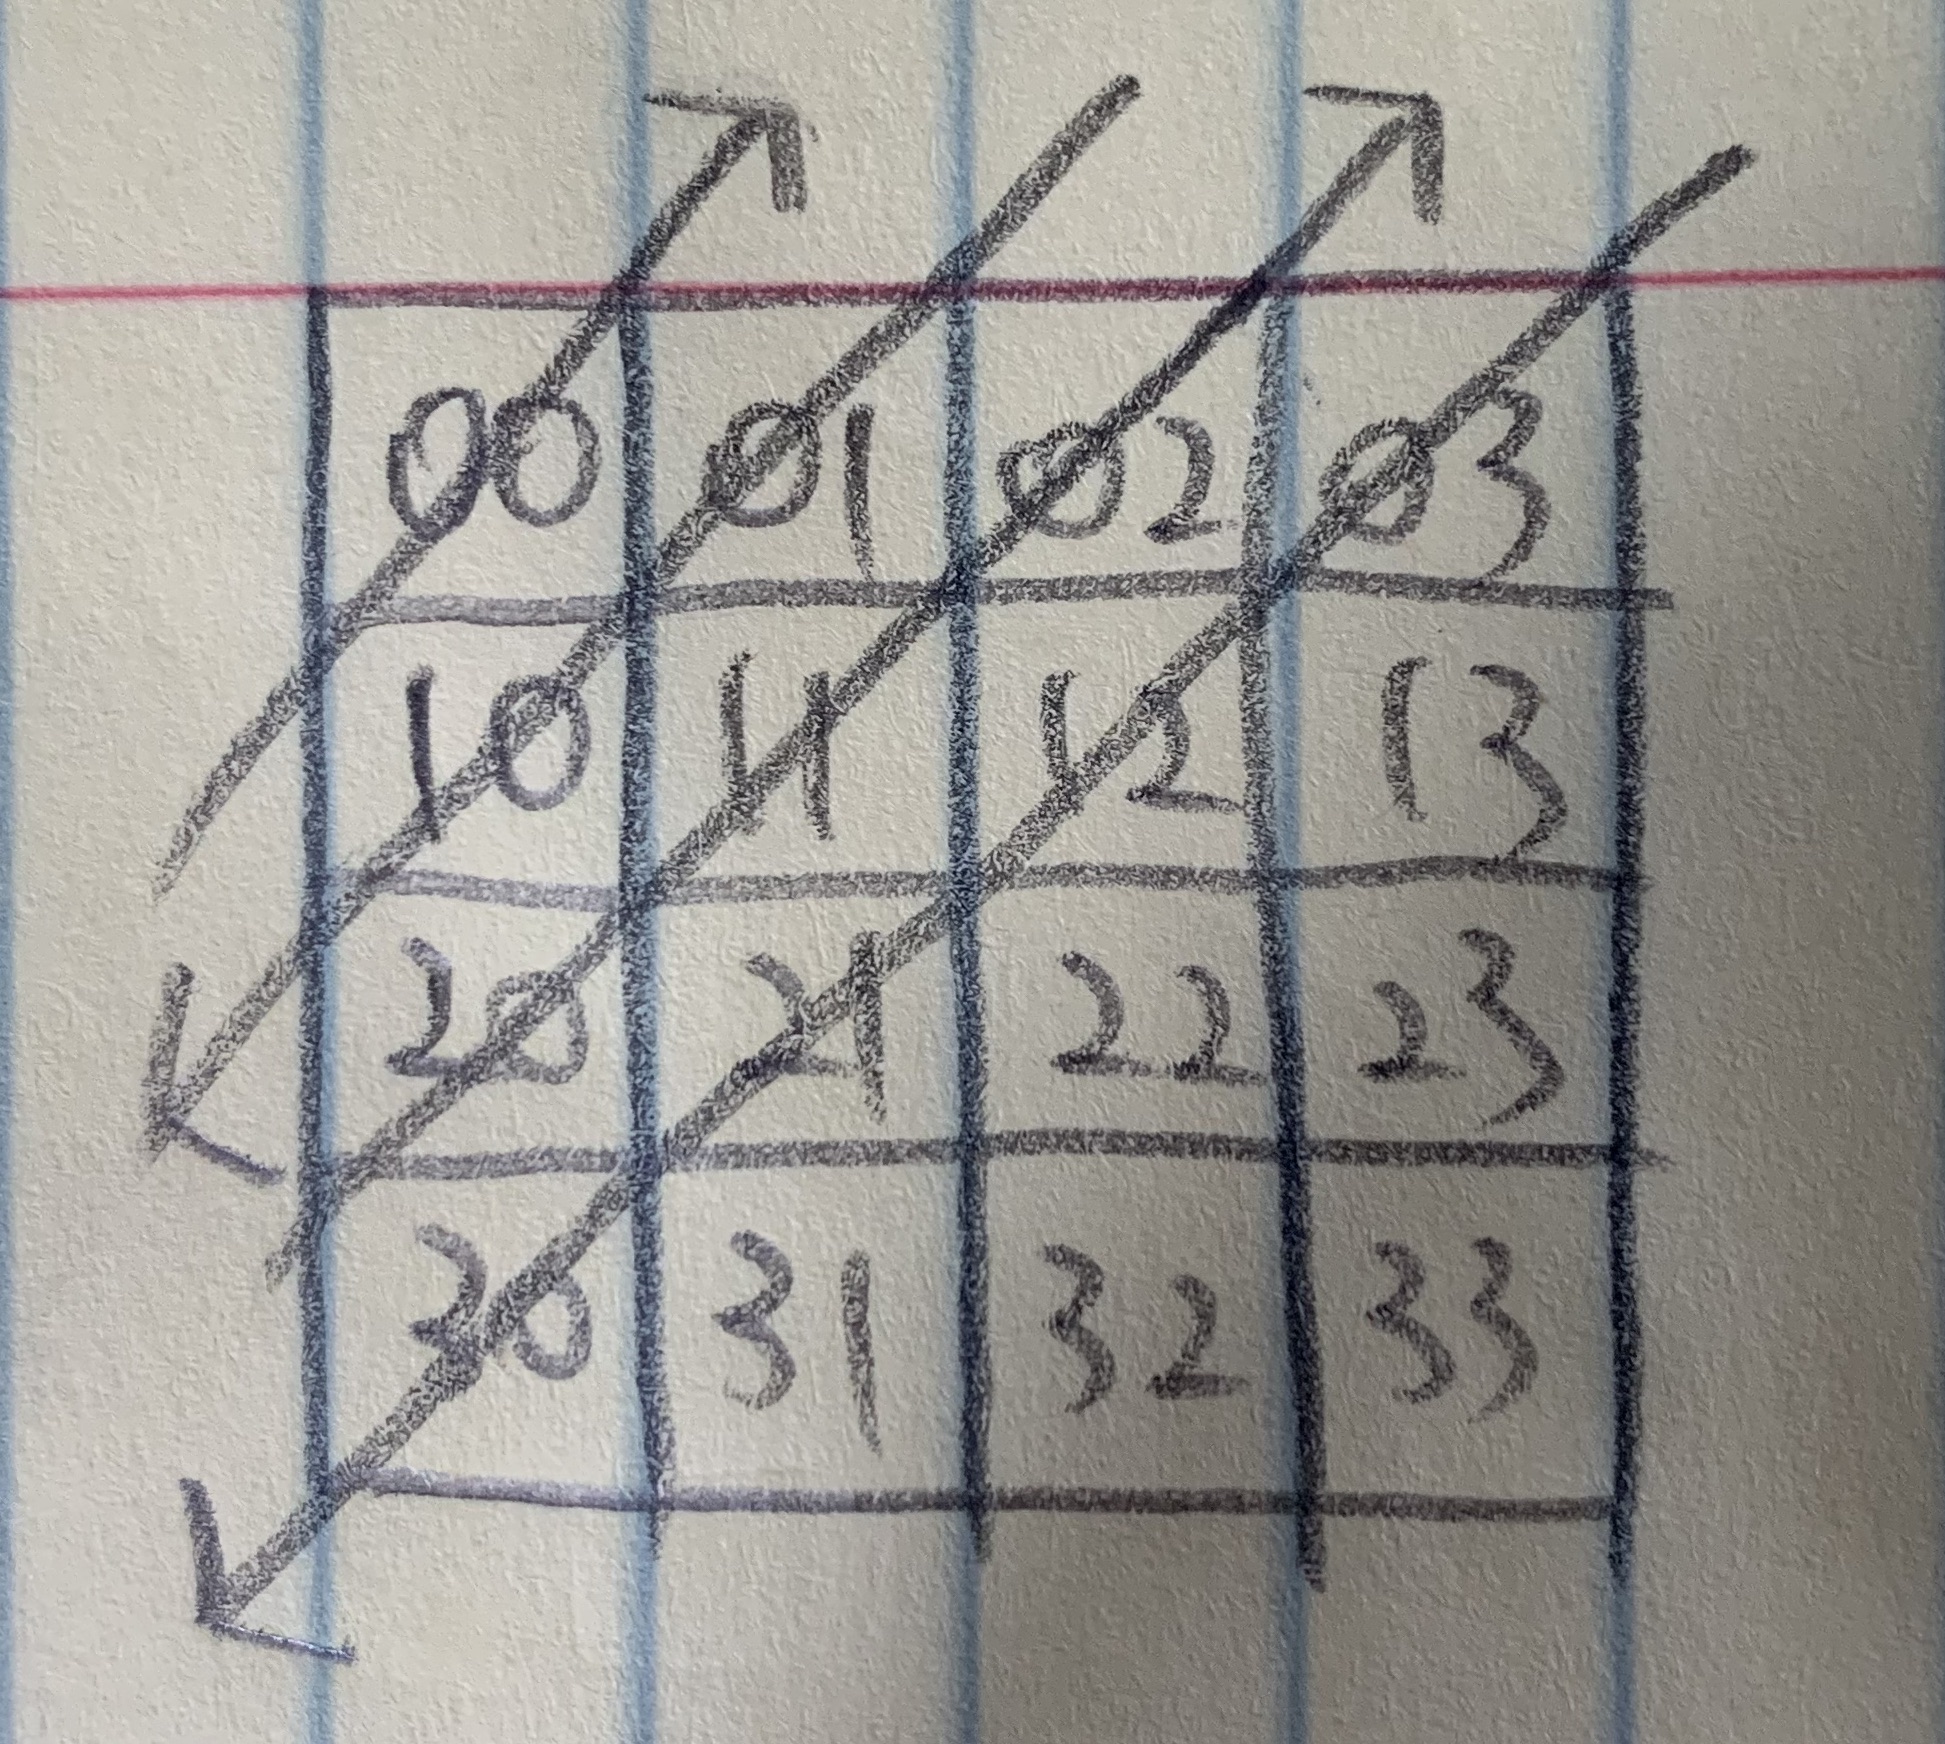 00 01 02 03
10 11 12 13
20 21 22 23
30 31 32 33